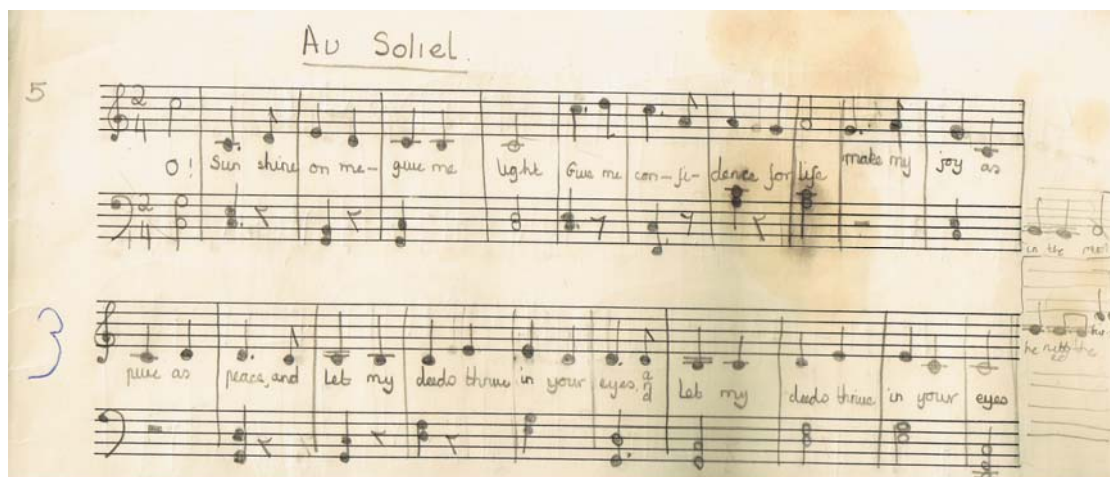 Au Soliel.
5
2
4
O! Sun shine on me- give me light Give me con-fi- dence for life make my joy as
2
4
in the
3
pure as peace, and Let my deeds thrive in your eyes, and Let my deeds thrive in your eyes
he the